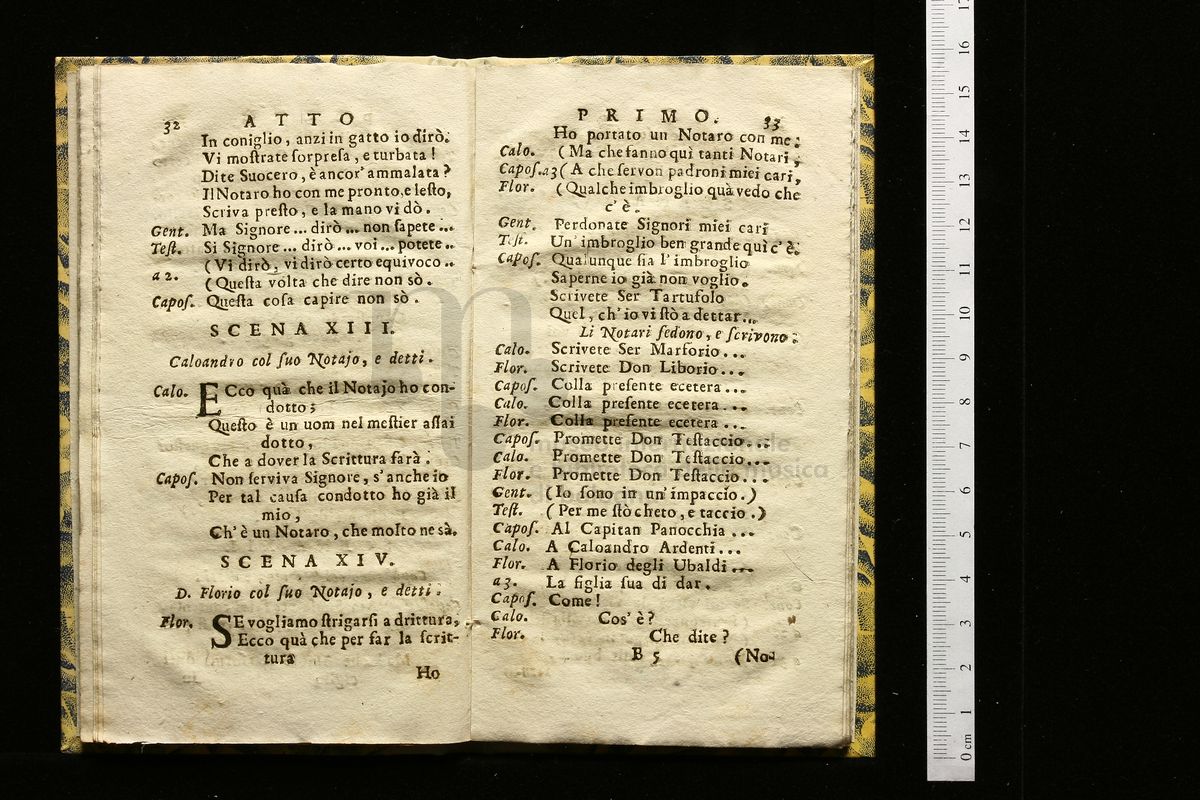 32 ATTO
In coniglio, anzi in gatto io dirò.
Vi moſtrate ſorpreſa, e turbata!
Dite Suocero, è ancor' ammalata?
Il Notaro ho con me pronto, e leſto,
Scriva preſto, e la mano vi dò.
Gent. Ma Signore... dirò... non ſapete...
Teſt. Si Signore... dirò... voi... potete..
(Vi dirò, vi dirò certo equivoco..
a 2. (Queſta volta che dire non sò.
Capoſ. Queſta coſa capire non sò.
SCENA XIII.
Caloandro col ſuo Notajo, e detti.
Calo. ECco quà che il Notajo ho con-
dotto;
Queſto è un uom nel meſtier aſſai
dotto,
Che a dover la Scrittura farà.
Capoſ. Non ſerviva Signore, s'anche io
Per tal cauſa condotto ho già il
mio,
Ch' è un Notaro, che molto ne sà.
SCENA XIV.
D. Florio col ſuo Notajo, e detti.
Flor. SE vogliamo ſtrigarſi a drittura,
Ecco quà che per far la ſcrit-
tura
Ho
PRIMO. 33
Ho portato un Notaro con me:
Calo. (Ma che fanno quì tanti Notari,
Capoſ. a 3 (A che ſervon padroni miei cari,
Flor. (Qualche imbroglio quà vedo che
c' è.
Gent. Perdonate Signori miei cari
Teſt. Un' imbroglio ben grande quì c' è.
Capoſ. Qualunque ſia l' imbroglio
Saperne io già non voglio.
Scrivete Ser Tartufolo
Quel, ch' io vi ſtò a dettar...
Li Notari ſedono, e ſcrivono.
Calo. Scrivete Ser Marforio...
Flor. Scrivete Don Liborio...
Capoſ. Colla preſente ecetera...
Calo. Colla preſente ecetera...
Flor. Colla preſente ecetera...
Capoſ. Promette Don Teſtaccio...
Calo. Promette Don Teſtaccio...
Flor. Promette Don Teſtaccio...
Gent. (Io ſono in un' impaccio.)
Teſt. (Per me ſtò cheto, e taccio.)
Capoſ. Al Capitan Panocchia...
Calo. A Caloandro Ardenti...
Flor. A Florio degli Ubaldi...
a 3. La figlia ſua di dar.
Capoſ. Come!
Calo. Cos' è?
Flor. Che dite?
B 5 (No-
0 cm 1 2 3 4 5 6 7 8 9 10 11 12 13 14 15 16 17